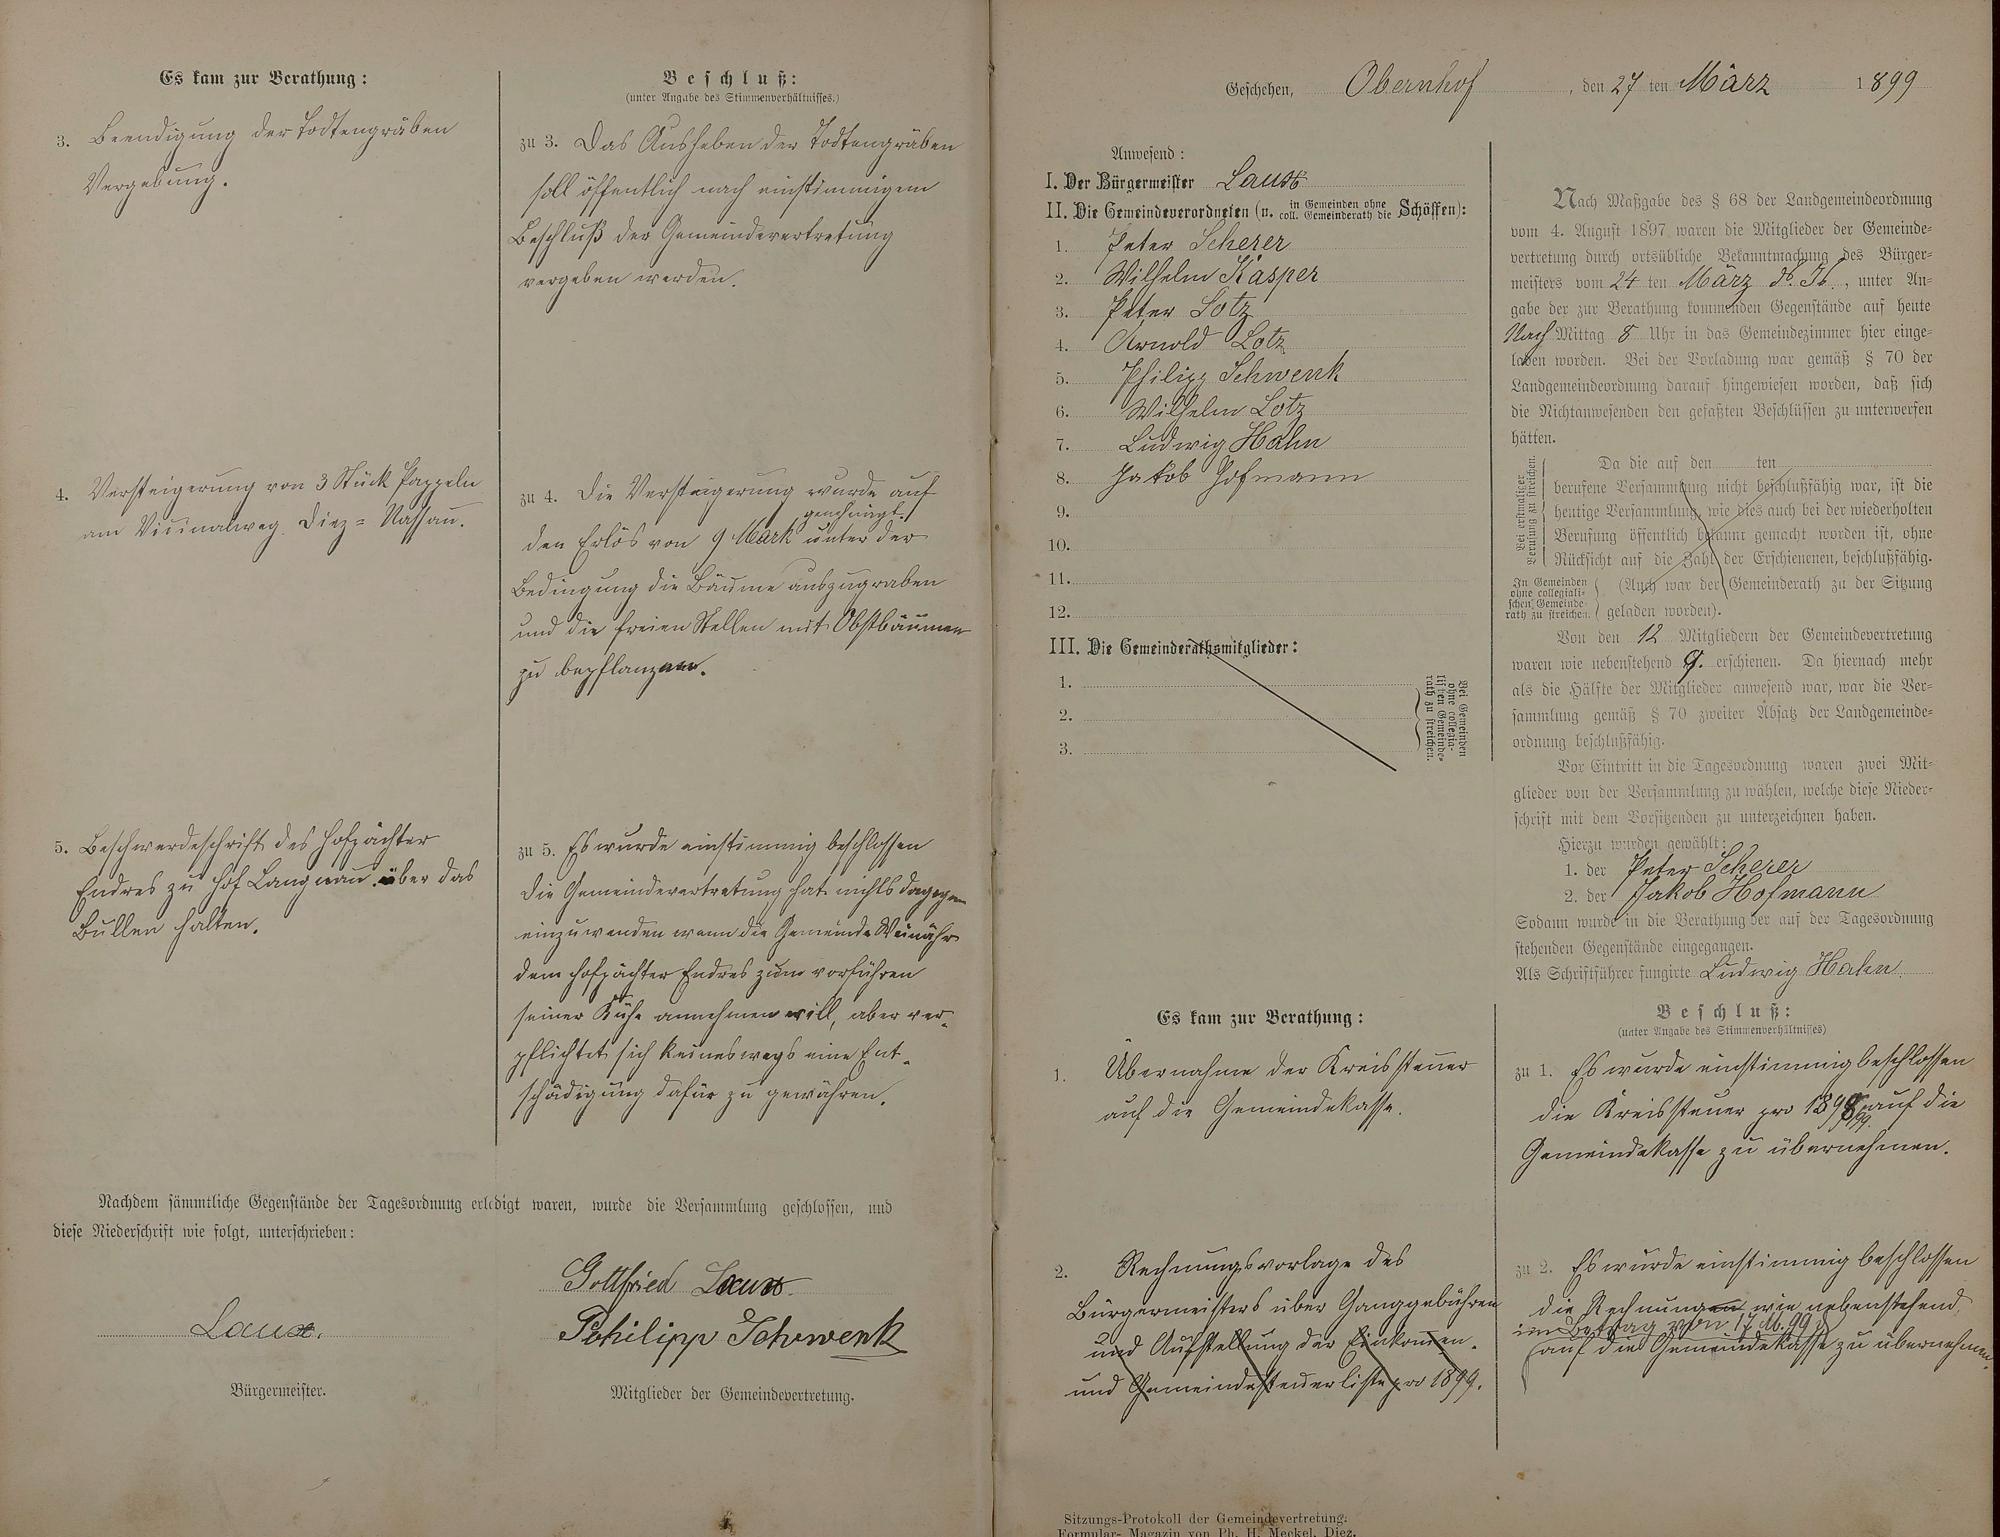 Es kam zur Berathung:
3. Beendigung der Todtengräben
Vergebung.
4. Versteigerung von 3 Stück Pappeln
am Vicinalweg Diez-Nassau.
5. Beschwerdeschrift des Hofpächter
Endres zu Hof Langnau über das
Bullen halten.
Beschluß:
(unter Angabe des Stimmenverhältnisses.)
zu 3. Das Ausheben der Todtengräben
soll öffentlich nach einstimmigem
Beschluß der Gemeindevertretung
vergeben werden.
zu 4. Die Versteigerung wurde auf
genehmigt
den Erlös von 9 Mark unter der
Bedingung die Bäume auszugraben
und die freien Stellen mit Obstbäumen
zu bepflanzen.
zu 5. Es wurde einstimmig beschlossen
die Gemeindevertretung hat nichts dagegen
einzuwenden wenn die Gemeinde Weinähr
dem Hofpächter Endres zum vorführen
seiner Kühe annehmen will, aber ver-
pflichtet sich keineswegs eine Ent-
schädigung dafür zu gewähren.
Nachdem sämmtliche Gegenstände der Tagesordnung erledigt waren, wurde die Versammlung geschlossen, und
diese Niederschrift wie folgt, unterschrieben:
Gottfried Laux
Laux.
Philipp Schwenk
Bürgermeister.
Mitglieder der Gemeindevertretung.
Geschehen, Obernhof, den 27 ten März 1899
Anwesend:
I. Der Bürgermeister Laux
II. Die Gemeindeverordneten (u. in Gemeinden ohne coll. Gemeinderath die Schöffen):
1. Peter Scherer
2. Wilhelm Kasper
3. Peter Lotz
4. Arnold Lotz
5. Philipp Schwenk
6. Wilhelm Lotz
7. Ludwig Hahn
8. Jakob Hofmann
9.
10.
11.
12.
III. Die Gemeinderathsmitglieder:
1.
2.
3.
Bei Gemeinden
ohne collegia-
lischen Gemeinde-
rath zu streichen.
Nach Maßgabe des § 68 der Landgemeindeordnung
vom 4. August 1897 waren die Mitglieder der Gemeinde-
vertretung durch ortsübliche Bekanntmachung des Bürger-
meisters vom 24 ten März ds. Js., unter An-
gabe der zur Berathung kommenden Gegenstände auf heute
Nach Mittag 8 Uhr in das Gemeindezimmer hier einge-
laden worden. Bei der Vorladung war gemäß § 70 der
Landgemeindeordnung darauf hingewiesen worden, daß sich
die Nichtanwesenden den gefaßten Beschlüssen zu unterwerfen
hätten.
Bei erstmaliger
Berufung zu streichen.
Da die auf den ten
berufene Versammlung nicht beschlußfähig war, ist die
heutige Versammlung, wie dies auch bei der wiederholten
Berufung öffentlich bekannt gemacht worden ist, ohne
Rücksicht auf die Zahl der Erschienenen, beschlußfähig.
In Gemeinden
ohne collegiali-
schen Gemeinde-
rath zu streichen.
(Auch war der Gemeinderath zu der Sitzung
geladen worden).
Von den 12 Mitgliedern der Gemeindevertretung
waren wie nebenstehend 9. erschienen. Da hiernach mehr
als die Hälfte der Mitglieder anwesend war, war die Ver-
sammlung gemäß § 70 zweiter Absatz der Landgemeinde-
ordnung beschlußfähig.
Vor Eintritt in die Tagesordnung waren zwei Mit-
glieder von der Versammlung zu wählen, welche diese Nieder-
schrift mit dem Vorsitzenden zu unterzeichnen haben.
Hierzu wurden gewählt:
1. der Peter Scherer
2. der Jakob Hofmann
Sodann wurde in die Berathung der auf der Tagesordnung
stehenden Gegenstände eingegangen.
Als Schriftführer fungirte Ludwig Hahn
Es kam zur Berathung:
1. Übernahme der Kreissteuer
auf die Gemeindekasse.
2. Rechnungsvorlage des
Bürgermeisters über Ganggebühren
und Aufstellung der Einkommen-
und Gemeindesteuerliste pro 1899.
Beschluß:
(unter Angabe des Stimmenverhältnisses)
zu 1. Es wurde einstimmig beschlossen
die Kreissteuer pro 1898/99 auf die
Gemeindekasse zu übernehmen.
zu 2. Es wurde einstimmig beschlossen
die Rechnungen wie nebenstehend
im Betrag von 17 M. 99
auf die Gemeindekasse zu übernehmen.
Sitzungs-Protokoll der Gemeindevertretung.
Formular-Magazin von Ph. H. Meckel, Diez.